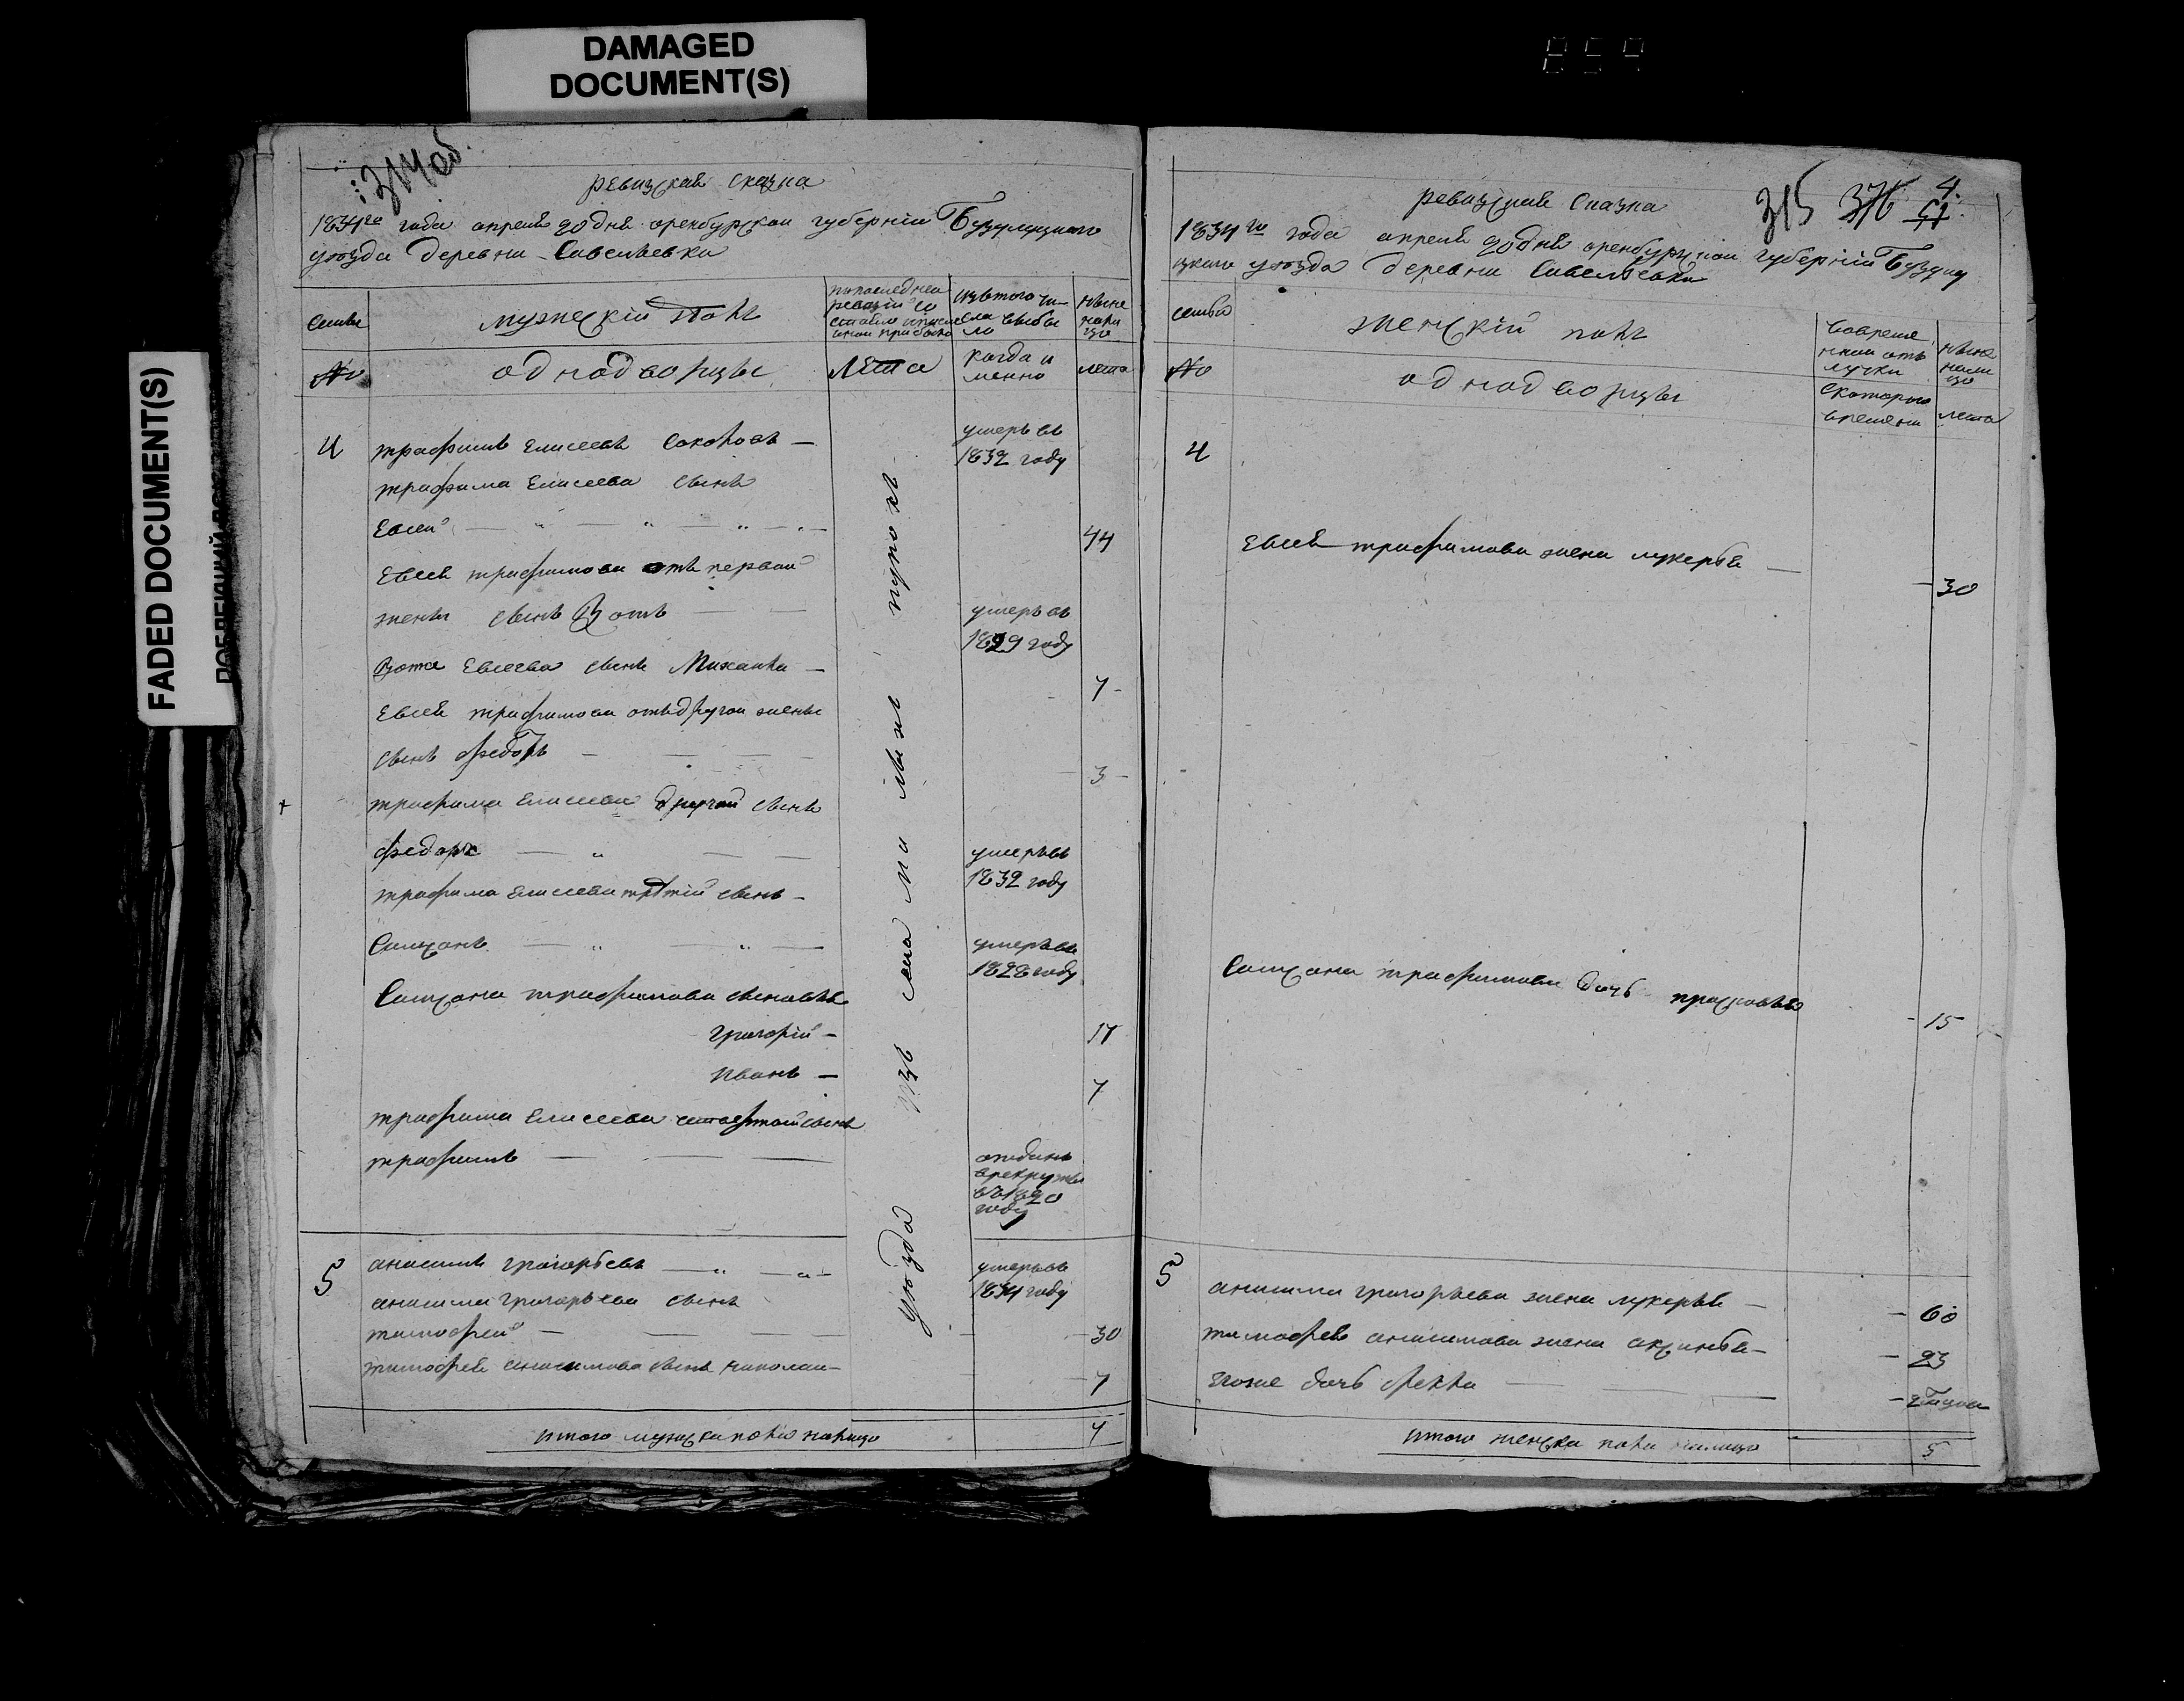 DAMAGED
DOCUMENT(S)
FADED DOCUMENT(S)
859
314 об.
ревизская сказка
1834го года апреля 20 дня оренбурской губернiи Бузулуцкаго
уезда деревни Савельевки
семьи
мужескiй полъ
по последней
ревизiи со
стояло
изътого чи-
сла выбы
ло
ныне
нали
цо
№
однодворцы
лета
когда и
менно
лета
4
трафимъ Елисеевъ Соколовъ —
умеръ въ
1832 году
трафима Елисеева сынъ
Евсей
44
Евсея трафимова отъ первой
жены сынъ Зотъ
умеръ въ
1829 году
Зота Евсеева сынъ Михаила —
7
Евсея трафимова отъ другой жены
сынъ федоръ
3
трафима Елисеева другой сынъ
федоръ
умеръ въ
1832 году
трафима Елисеева третiй сынъ —
Самсонъ
умеръ въ
1828 году
Самсона трафимова сыновья
григорiй —
17
Иванъ —
7
трафима Елисеева четвертой сынъ
трафимъ
отданъ
врекруты
въ 1820
году
5
анисимъ григорьевъ
умеръ въ
1834 году
анисима григорьева сынъ
тимофей
30
тимофея анисимова сынъ николай —
7
изъ
уезда
итого мужска пола налицо
7
315 376 4.
ревизская Сказка
1834го года апреля 20 дня оренбурской губернiи Бузулу
цкаго уезда деревни Савельевки
семьи
женскiй полъ
вовремя
нной отъ
лучки
ныне
нали
цо
№
однодворцы
скоторого
времени
лета
4
Евсея трафимова жена лукерья —
30
Самсона трафимова дочь прасковья
15
5
анисима григорьева жена лукерья —
60
тимофея анисимова жена аксинья —
23
ихже дочь фекла
итого женска пола налицо
5